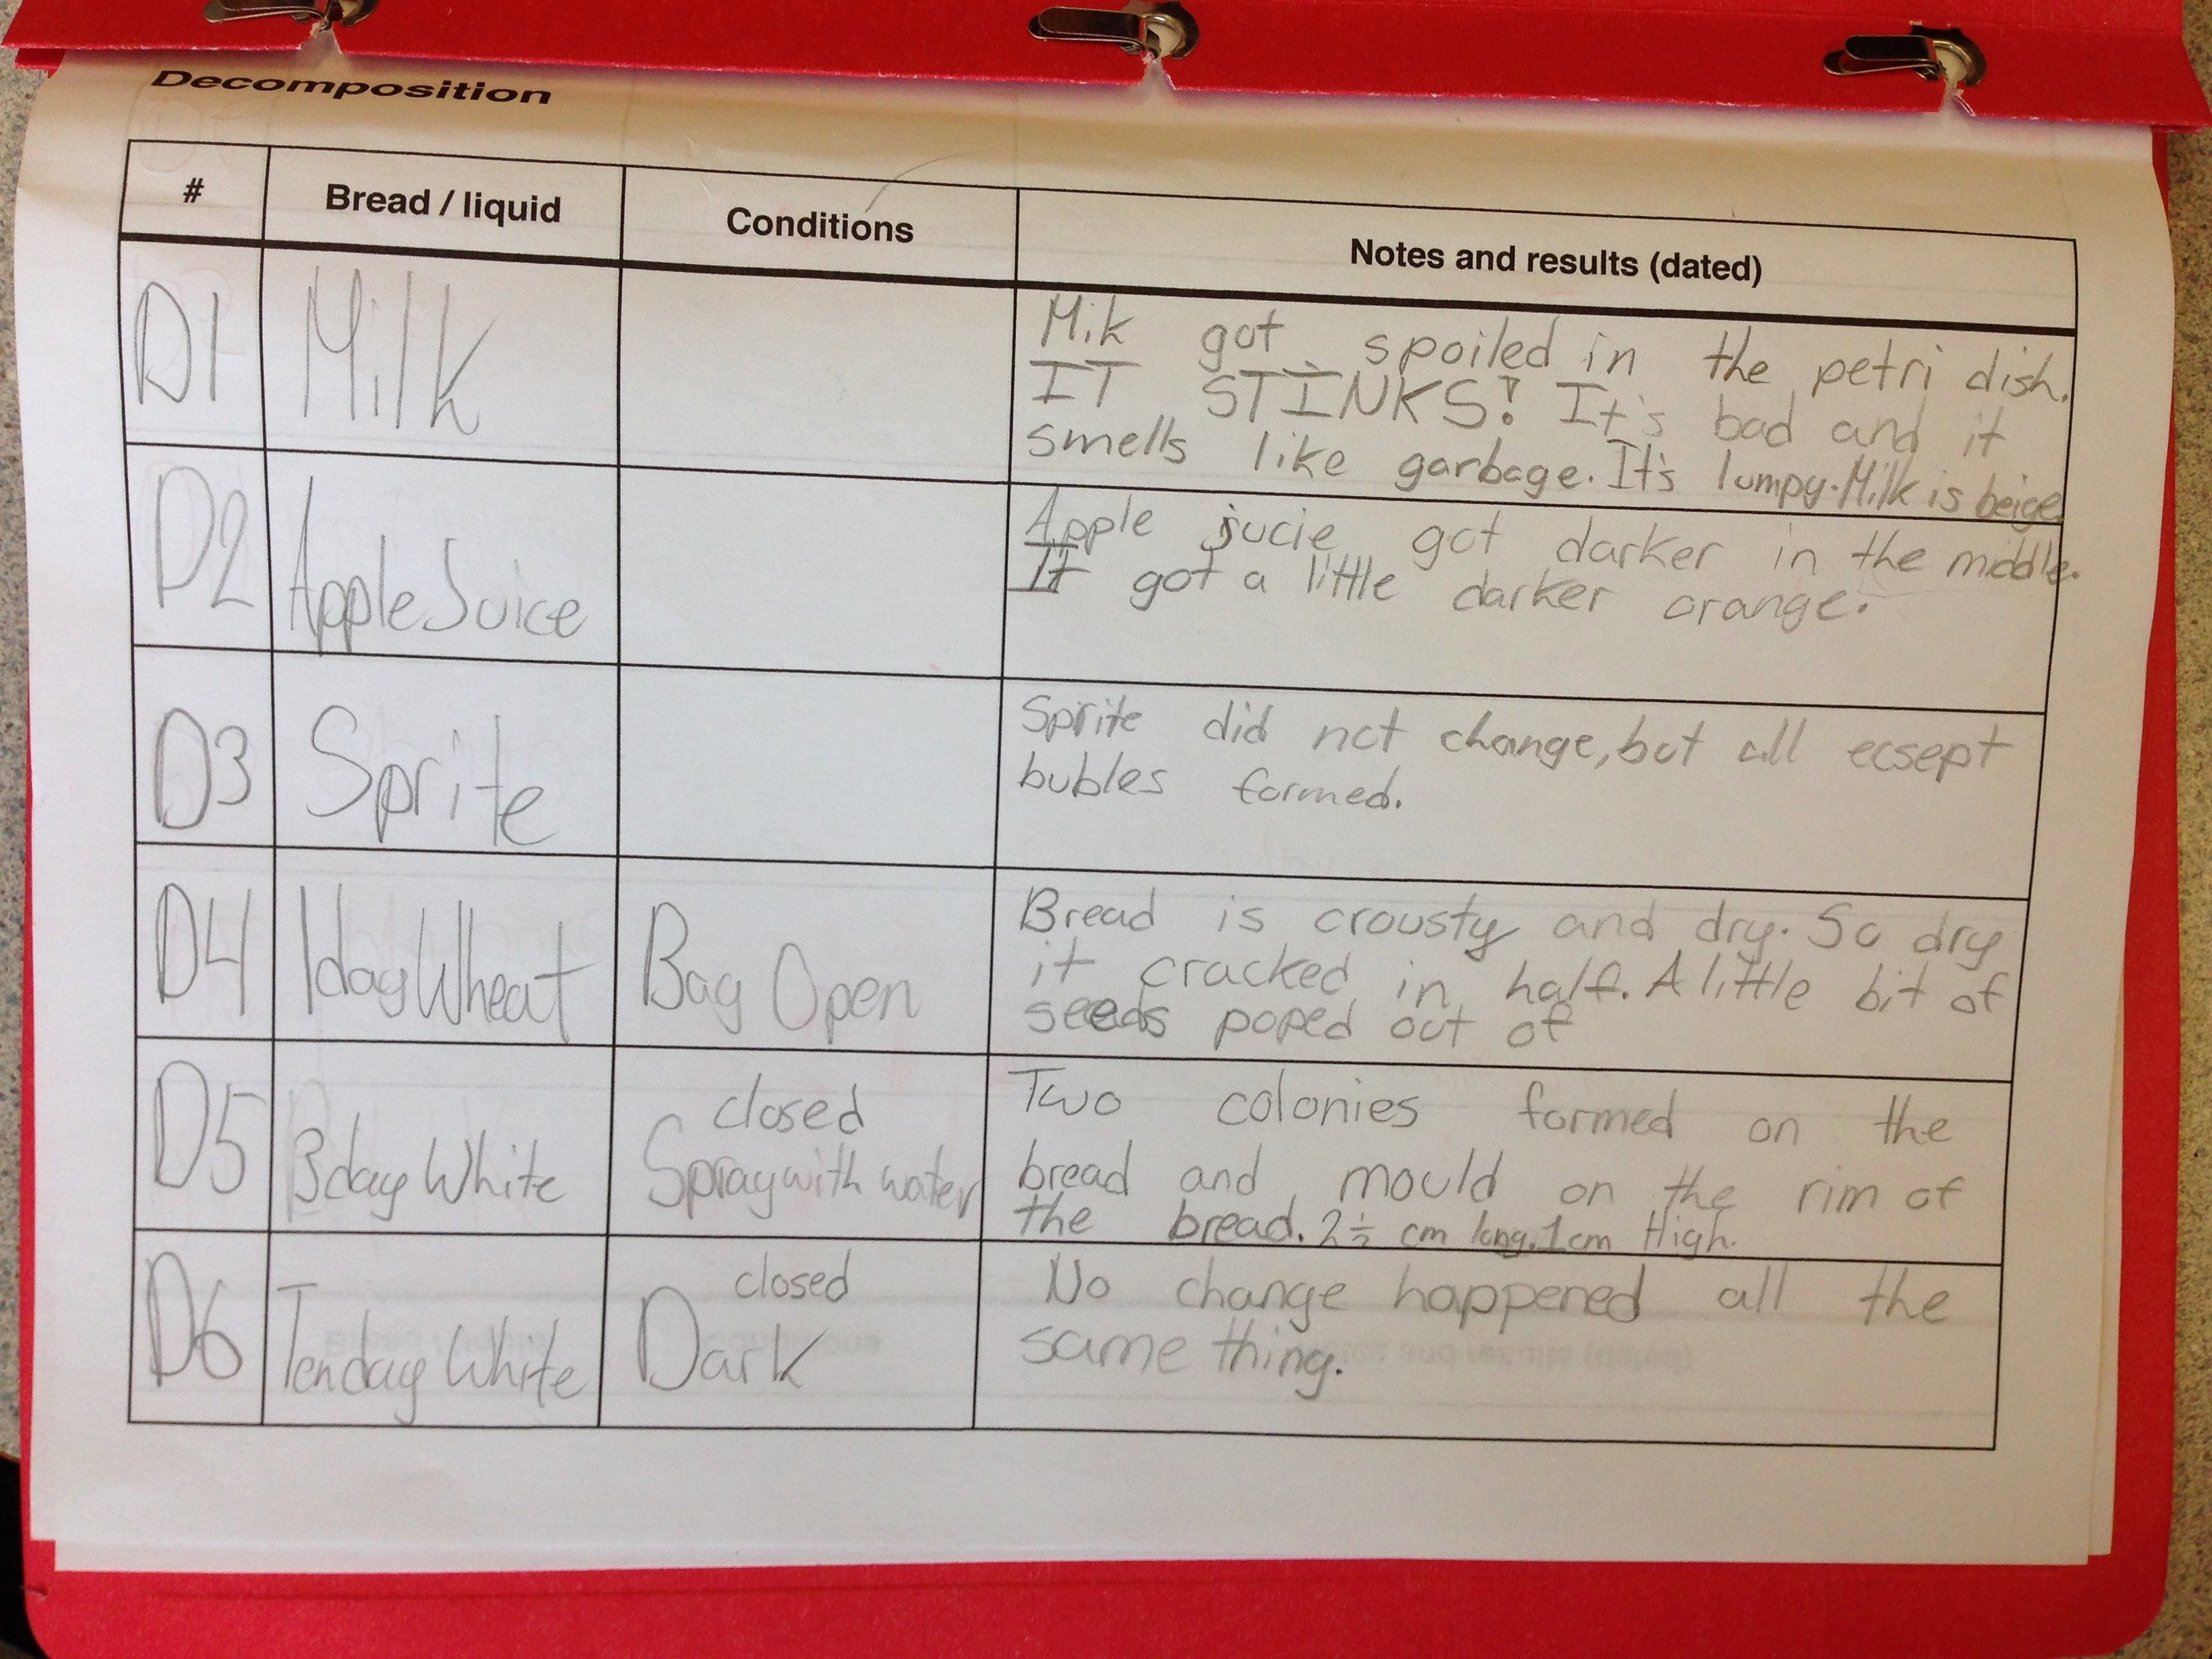 Decomposition
# Bread / liquid Conditions Notes and results (dated)
D1 Milk
Mik got spoiled in the petri dish.
IT STINKS! It's bad and it
smells like garbage. It's lumpy. Milk is beige.
D2 Apple Juice
Apple jucie got darker in the middle.
It got a little darker orange.
D3 Sprite
Sprite did not change, but all ecsept
bubles formed.
D4 1day Wheat Bag Open
Bread is crousty and dry. So dry
it cracked in half. A little bit of
seeds poped out of
D5 3day White
closed
Spray with water
Two colonies formed on the
bread and mould on the rim of
the bread. 2½ cm long. 1cm High.
D6 Tenday White
closed
Dark
No change happened all the
same thing.